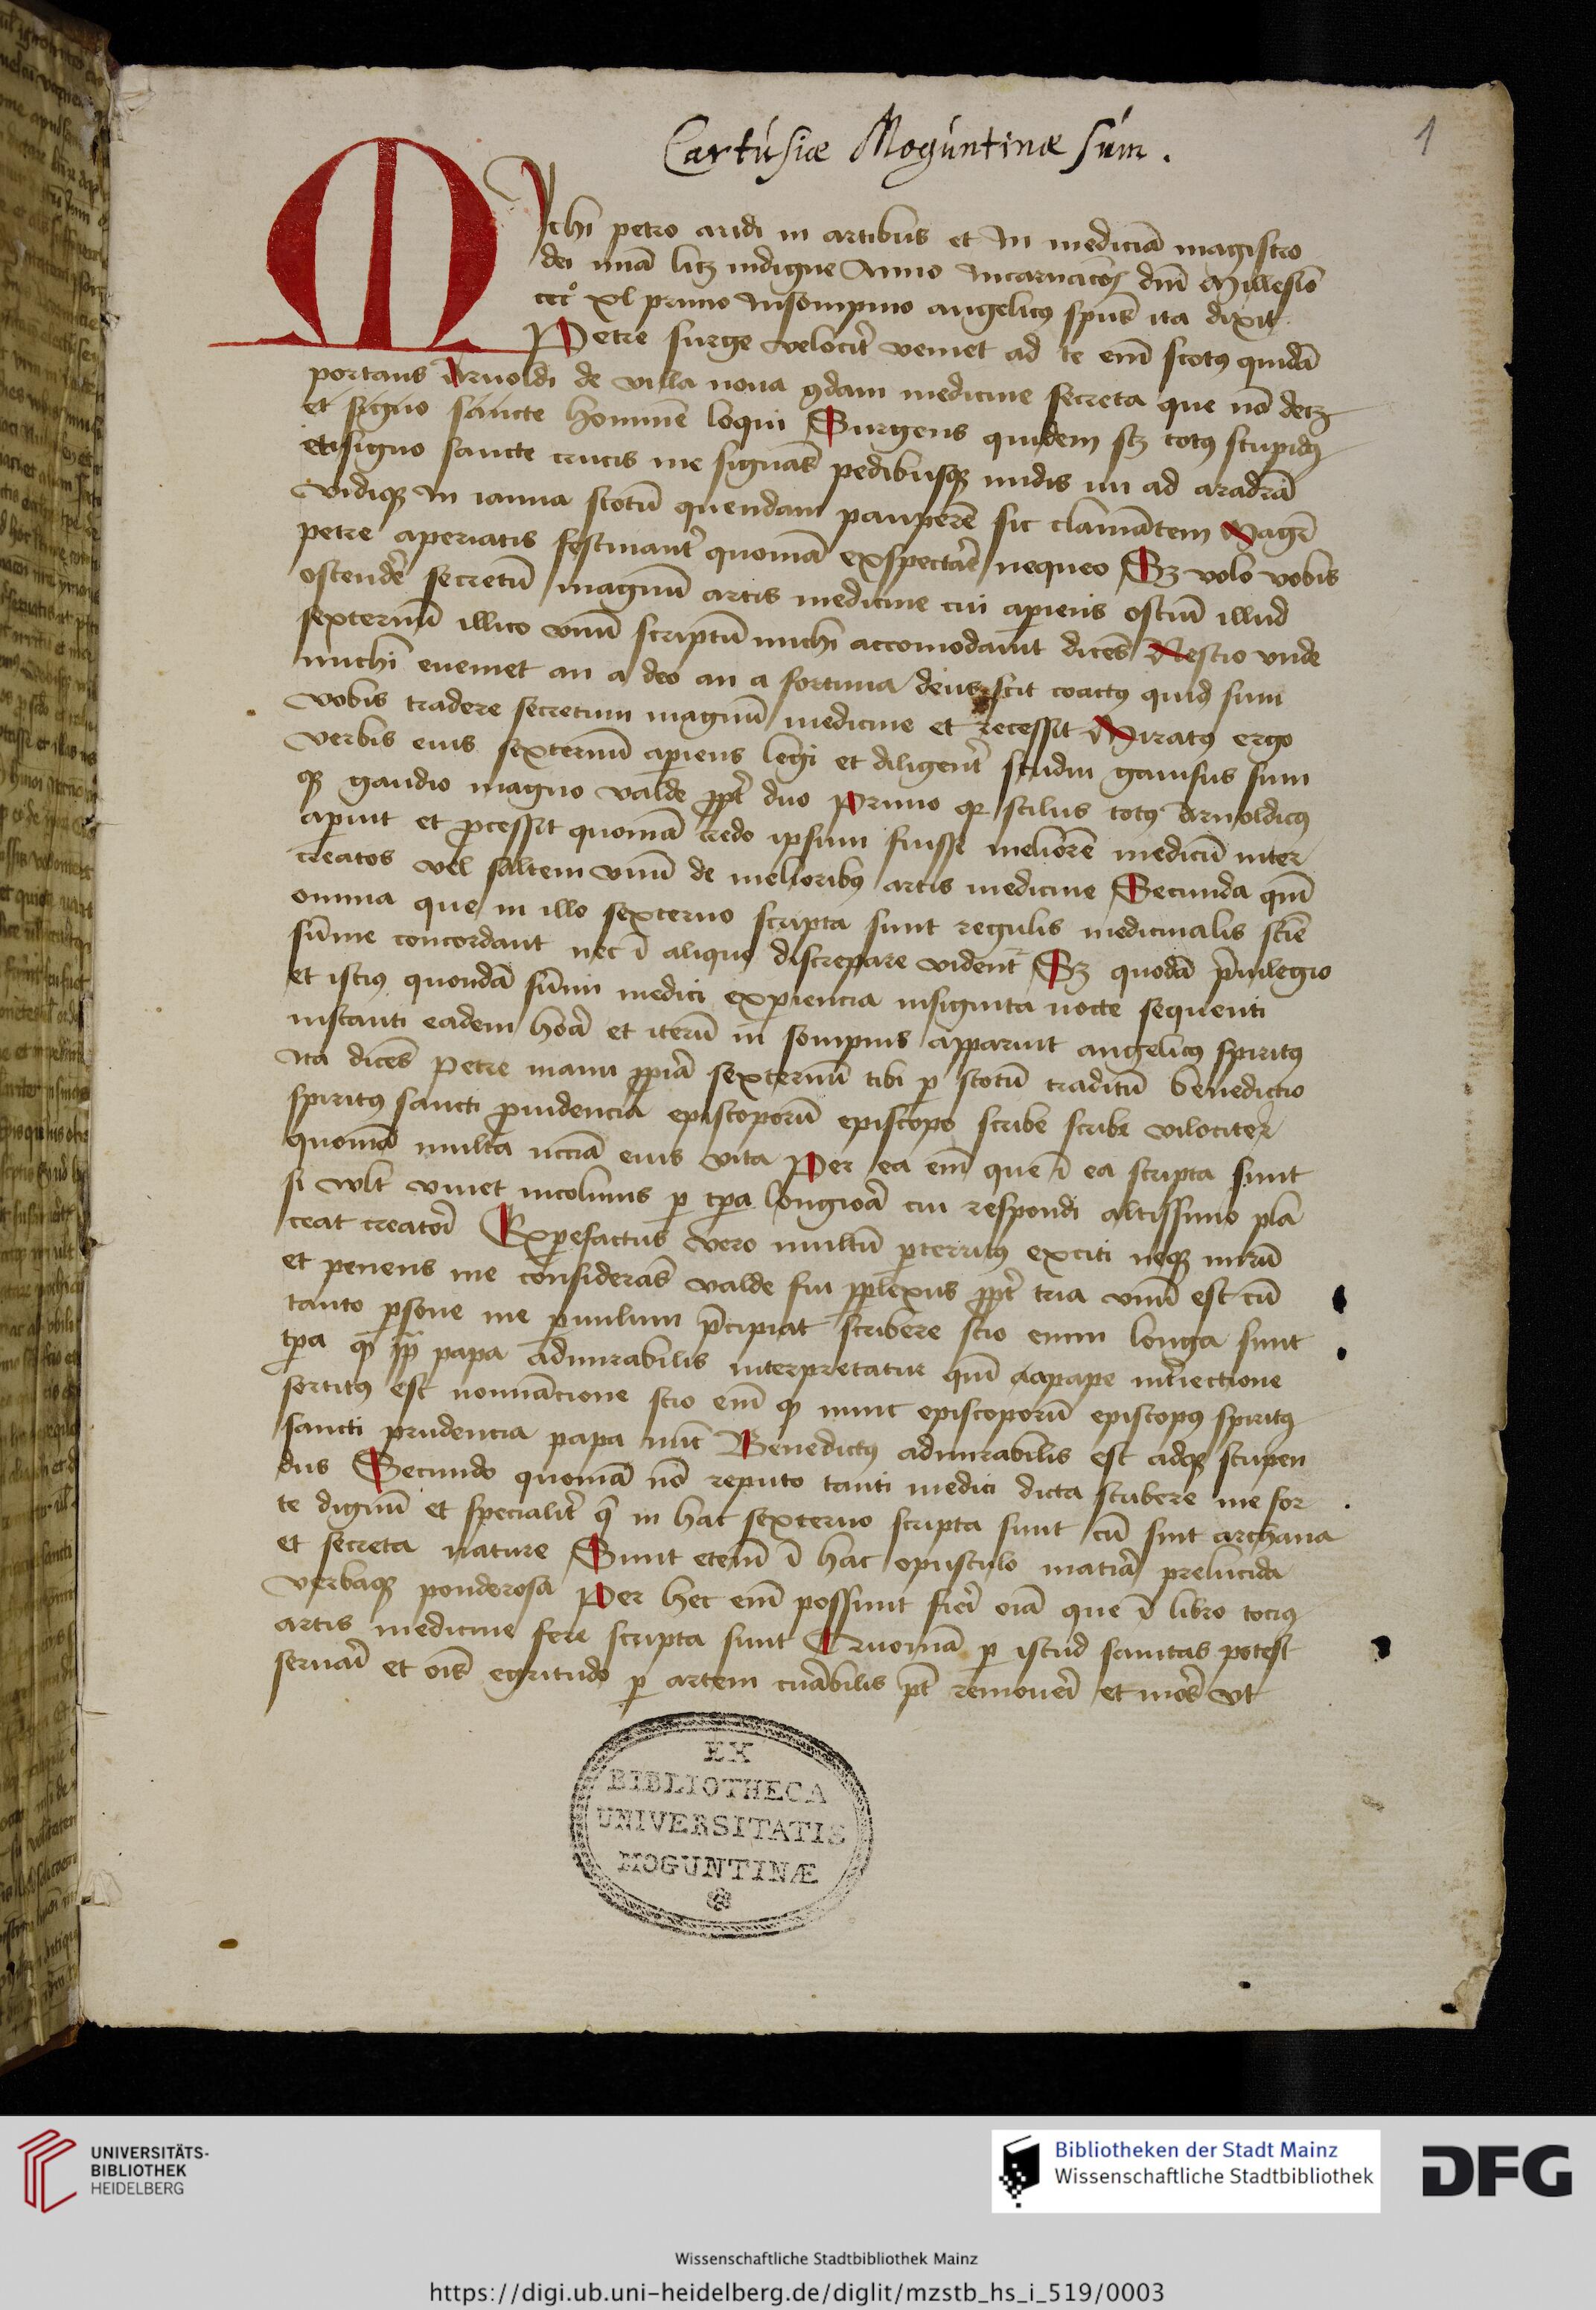 Cartúsiæ Mogúntinæ súm.
1
Michi petro aridi in artibus et in medicīa magistro
dei mīa licz indigne Anno Incarnacōis dnī Millesīo
ccc° xl primo Insompno angelicꝯ spūs ita dixit
Petre surge velocit̄ veniet ad te enī scotꝯ quidā
portans Arnoldi de villa noua qdam medicine secreta que nō decz
et signo sancte hominē loqui Surgens quidem sz totꝯ stupidꝯ
et signo sancte crucis me signās pedibusqz nudis
vidiqz in ianua scotū quendam pauperē sic clamātem Magr̄
petre aperiatis festinant̄ quoniā exspectar̄e nequeo Sz volo vobis
ostender̄ secretū magnū artis medicine cui apiens ostiū illud
sexternū illico vnū scriptū michi accomodauit dicēs Nescio vnde
michi eueniet an a deo an a fortuna deus scit coactꝯ quid sum
vobis tradere secretum magnū medicine et recessit Miratꝯ ergo
verbis eius sexternū apiens legi et diligent̄ studui gauisus sum
qz gaudio magno valde ppt̄ duo Primo qr stilus totꝯ Arnoldicꝯ
apuit et pcessit quoniā credo ipsum fuisse meliorē medicū inter
creatos vel saltem vnū de melioribꝯ artis medicine Secunda qm̄
omnia que in illo sexterno scripta sunt regulis medicinalis sciē
sūme concordant nec ī aliquo discrepare vident̄ Sz quodā p̄uilegio
et istiꝯ quondā sūmi medici expiencia insignita nocte sequenti
instanti eadem hoā et iterū in sompnis apparuit angelicꝯ spiritꝯ
ita dicēs Petre manu ppiā sexternū tibi p scotū traditū benedictio
spiritꝯ sancti puidencia episcoporū episcopo scribe scribe vilociter
quoniā multa eius vita Per ea enī que ī ea scripta sunt
si wlt viuet incolumis p tpa longioā cui respondi altissimo pla
ceat creatoī Expefactus vero multū pterritꝯ exciti neqz mirū
et penens me considerās valde fui pplexus ppt̄ tria vnū est cū
tanto psone me pmulum p̄cipiat scribere scio enim longa sunt
tpa papa admirabilis interpretatur qm̄ a pape int̄iectione
sortitꝯ est nomīacione scio enī qz nunc episcoporū episcopꝯ spiritꝯ
sancti prudencia papa nūc Benedictꝯ admirabilis est adqz stupen
dus Secundo quoniā nō reputo tanti medici dicta scribere me for
te dignū et specialit̄ q̄ in hac sexterno scripta sunt cū sint archana
et secreta nature Sunt etenī ī hac opusculo matiā prelucida
verbaqz ponderosa Per hec enī possunt fieī oīa que ī libro tociꝯ
artis medicine fere scripta sunt Quoniā p istud sanitas potest
seruaī et oīs egritudo p artem curābilis pt̄ remoueī et mōs vt
EX
BIBLIOTHECA
UNIVERSITATIS
MOGUNTINÆ
UNIVERSITÄTS-
BIBLIOTHEK
HEIDELBERG
Bibliotheken der Stadt Mainz
Wissenschaftliche Stadtbibliothek
DFG
Wissenschaftliche Stadtbibliothek Mainz
https://digi.ub.uni-heidelberg.de/diglit/mzstb_hs_i_519/0003